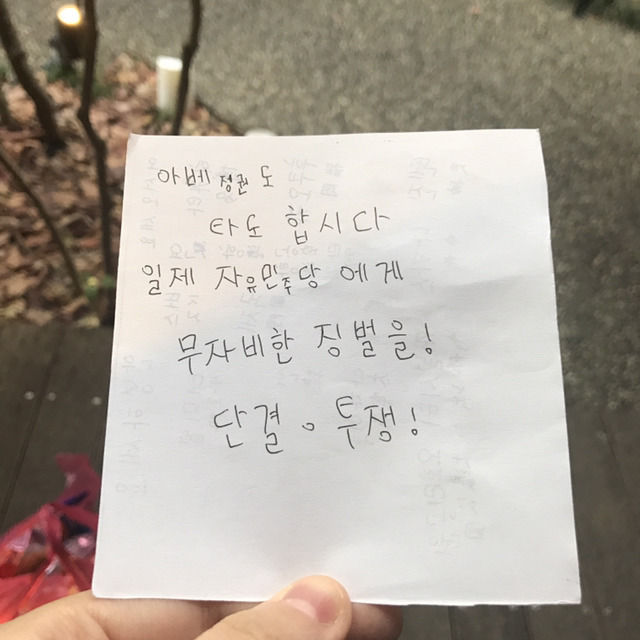 아베 정권 도
타도 합시다
일제 자유민주당 에게
무자비한 징벌을!
단결 。 투쟁!